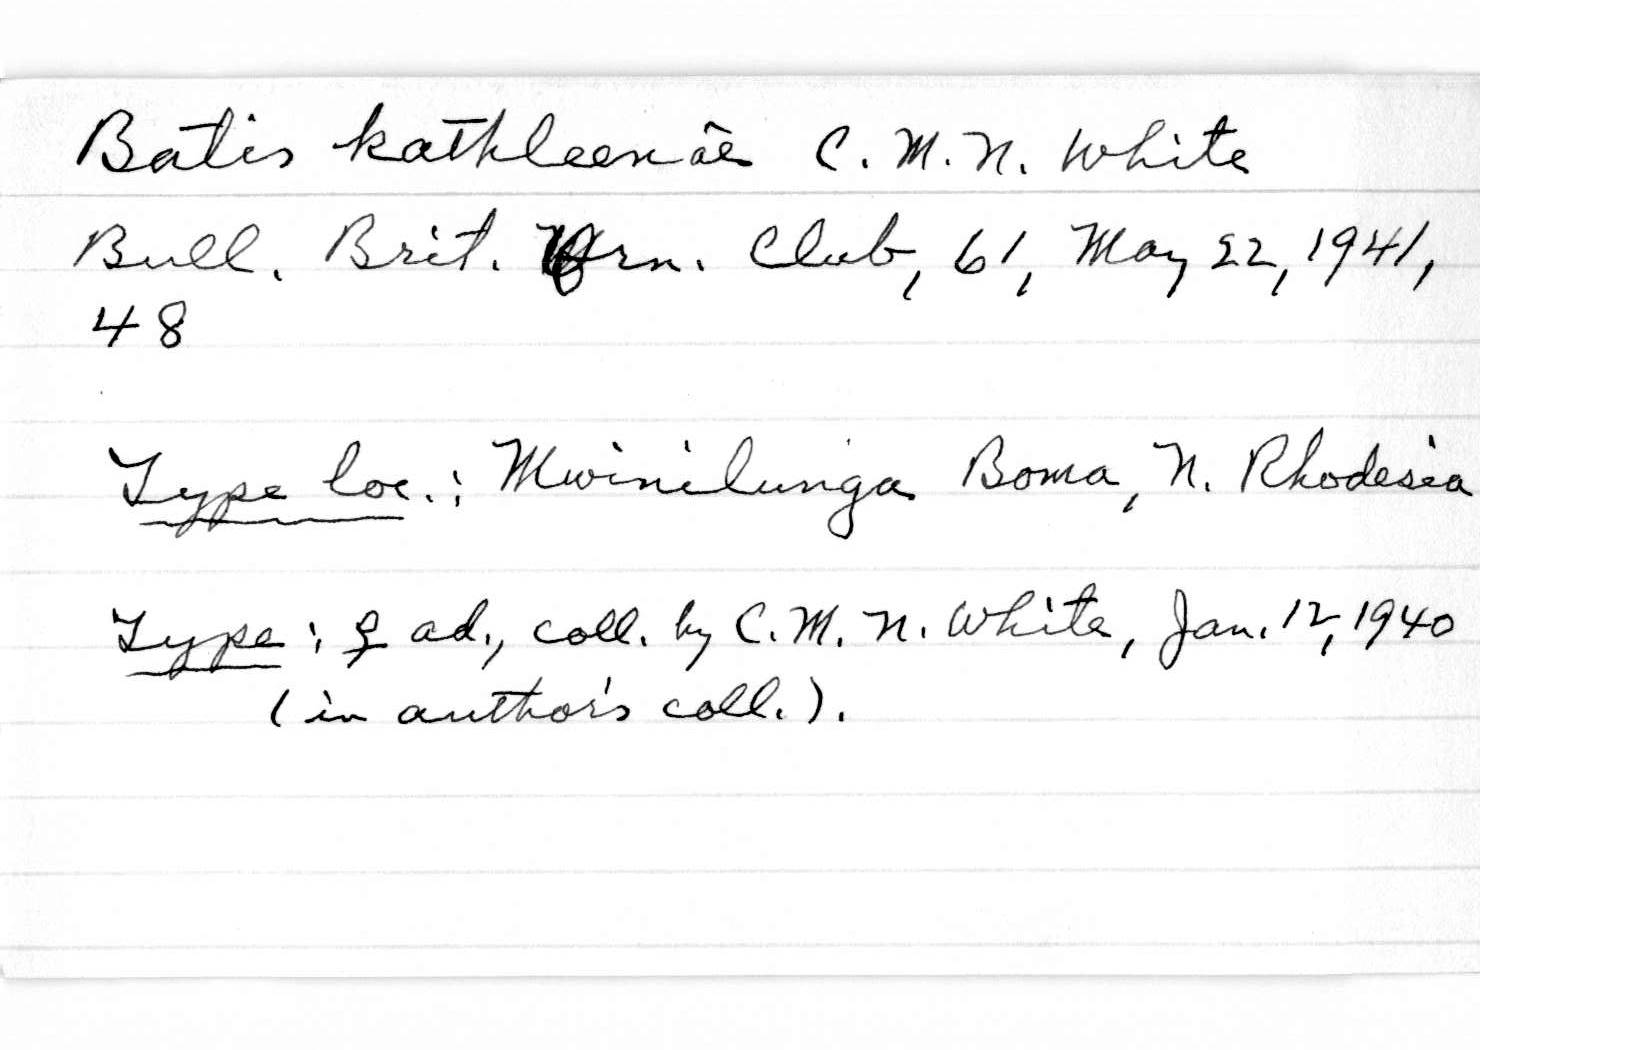 Batis kathleenae C. M. N. White
Bull. Brit. Orn. Club, 61, May 22, 1941,
48
Type loc.: Mwinilunga Boma, N. Rhodesia
Type: ♀ ad., coll. by C. M. N. White, Jan. 12, 1940
(in author's coll.).